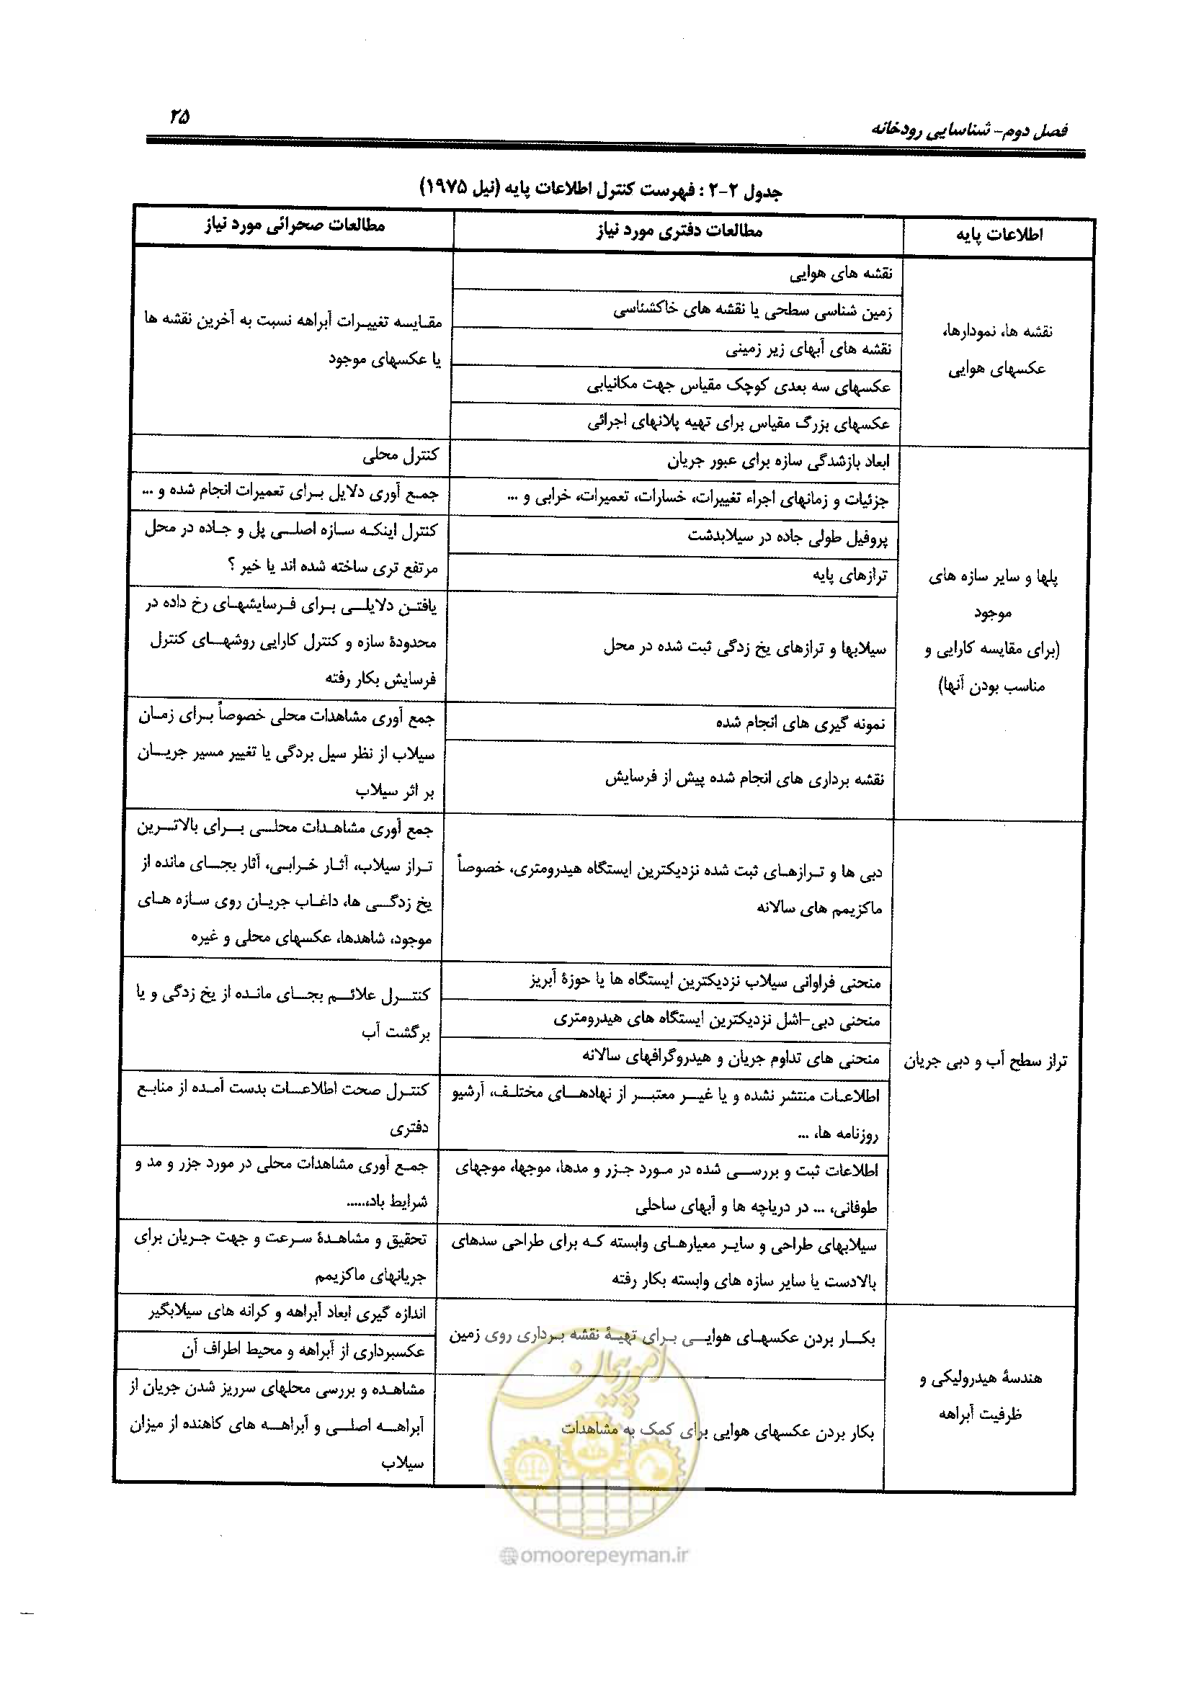 فصل دوم- شناسایی رودخانه
۲۵
جدول ۲-۲ : فهرست کنترل اطلاعات پایه (نیل ۱۹۷۵)
اطلاعات پایه
مطالعات دفتری مورد نیاز
مطالعات صحرائی مورد نیاز
نقشه ها، نمودارها،
عکسهای هوایی
نقشه های هوایی
زمین شناسی سطحی یا نقشه های خاکشناسی
نقشه های آبهای زیر زمینی
عکسهای سه بعدی کوچک مقیاس جهت مکانیابی
عکسهای بزرگ مقیاس برای تهیه پلانهای اجرائی
مقایسه تغییرات آبراهه نسبت به آخرین نقشه ها
یا عکسهای موجود
پلها و سایر سازه های
موجود
(برای مقایسه کارایی و
مناسب بودن آنها)
ابعاد بازشدگی سازه برای عبور جریان
جزئیات و زمانهای اجراء تغییرات، خسارات، تعمیرات، خرابی و ...
پروفیل طولی جاده در سیلابدشت
ترازهای پایه
سیلابها و ترازهای یخ زدگی ثبت شده در محل
نمونه گیری های انجام شده
نقشه برداری های انجام شده پیش از فرسایش
کنترل محلی
جمع آوری دلایل برای تعمیرات انجام شده و ...
کنترل اینکه سازه اصلی پل و جاده در محل
مرتفع تری ساخته شده اند یا خیر ؟
یافتن دلایلی برای فرسایشهای رخ داده در
محدودهٔ سازه و کنترل کارایی روشهای کنترل
فرسایش بکار رفته
جمع آوری مشاهدات محلی خصوصاً برای زمان
سیلاب از نظر سیل بردگی یا تغییر مسیر جریان
بر اثر سیلاب
تراز سطح آب و دبی جریان
دبی ها و ترازهای ثبت شده نزدیکترین ایستگاه هیدرومتری، خصوصاً
ماکزیمم های سالانه
منحنی فراوانی سیلاب نزدیکترین ایستگاه ها یا حوزهٔ آبریز
منحنی دبی-اشل نزدیکترین ایستگاه های هیدرومتری
منحنی های تداوم جریان و هیدروگرافهای سالانه
اطلاعات منتشر نشده و یا غیر معتبر از نهادهای مختلف، آرشیو
روزنامه ها، ...
اطلاعات ثبت و بررسی شده در مورد جزر و مدها، موجها، موجهای
طوفانی، ... در دریاچه ها و آبهای ساحلی
سیلابهای طراحی و سایر معیارهای وابسته که برای طراحی سدهای
بالادست یا سایر سازه های وابسته بکار رفته
جمع آوری مشاهدات محلی برای بالاترین
تراز سیلاب، آثار خرابی، آثار بجای مانده از
یخ زدگی ها، داغاب جریان روی سازه های
موجود، شاهدها، عکسهای محلی و غیره
کنترل علائم بجای مانده از یخ زدگی و یا
برگشت آب
کنترل صحت اطلاعات بدست آمده از منابع
دفتری
جمع آوری مشاهدات محلی در مورد جزر و مد و
شرایط باد،.....
تحقیق و مشاهدهٔ سرعت و جهت جریان برای
جریانهای ماکزیمم
هندسهٔ هیدرولیکی و
ظرفیت آبراهه
بکار بردن عکسهای هوایی برای تهیهٔ نقشه برداری روی زمین
بکار بردن عکسهای هوایی برای کمک به مشاهدات
اندازه گیری ابعاد آبراهه و کرانه های سیلابگیر
عکسبرداری از آبراهه و محیط اطراف آن
مشاهده و بررسی محلهای سرریز شدن جریان از
آبراهه اصلی و آبراهه های کاهنده از میزان
سیلاب
امور پیمان
@omoorepeyman.ir